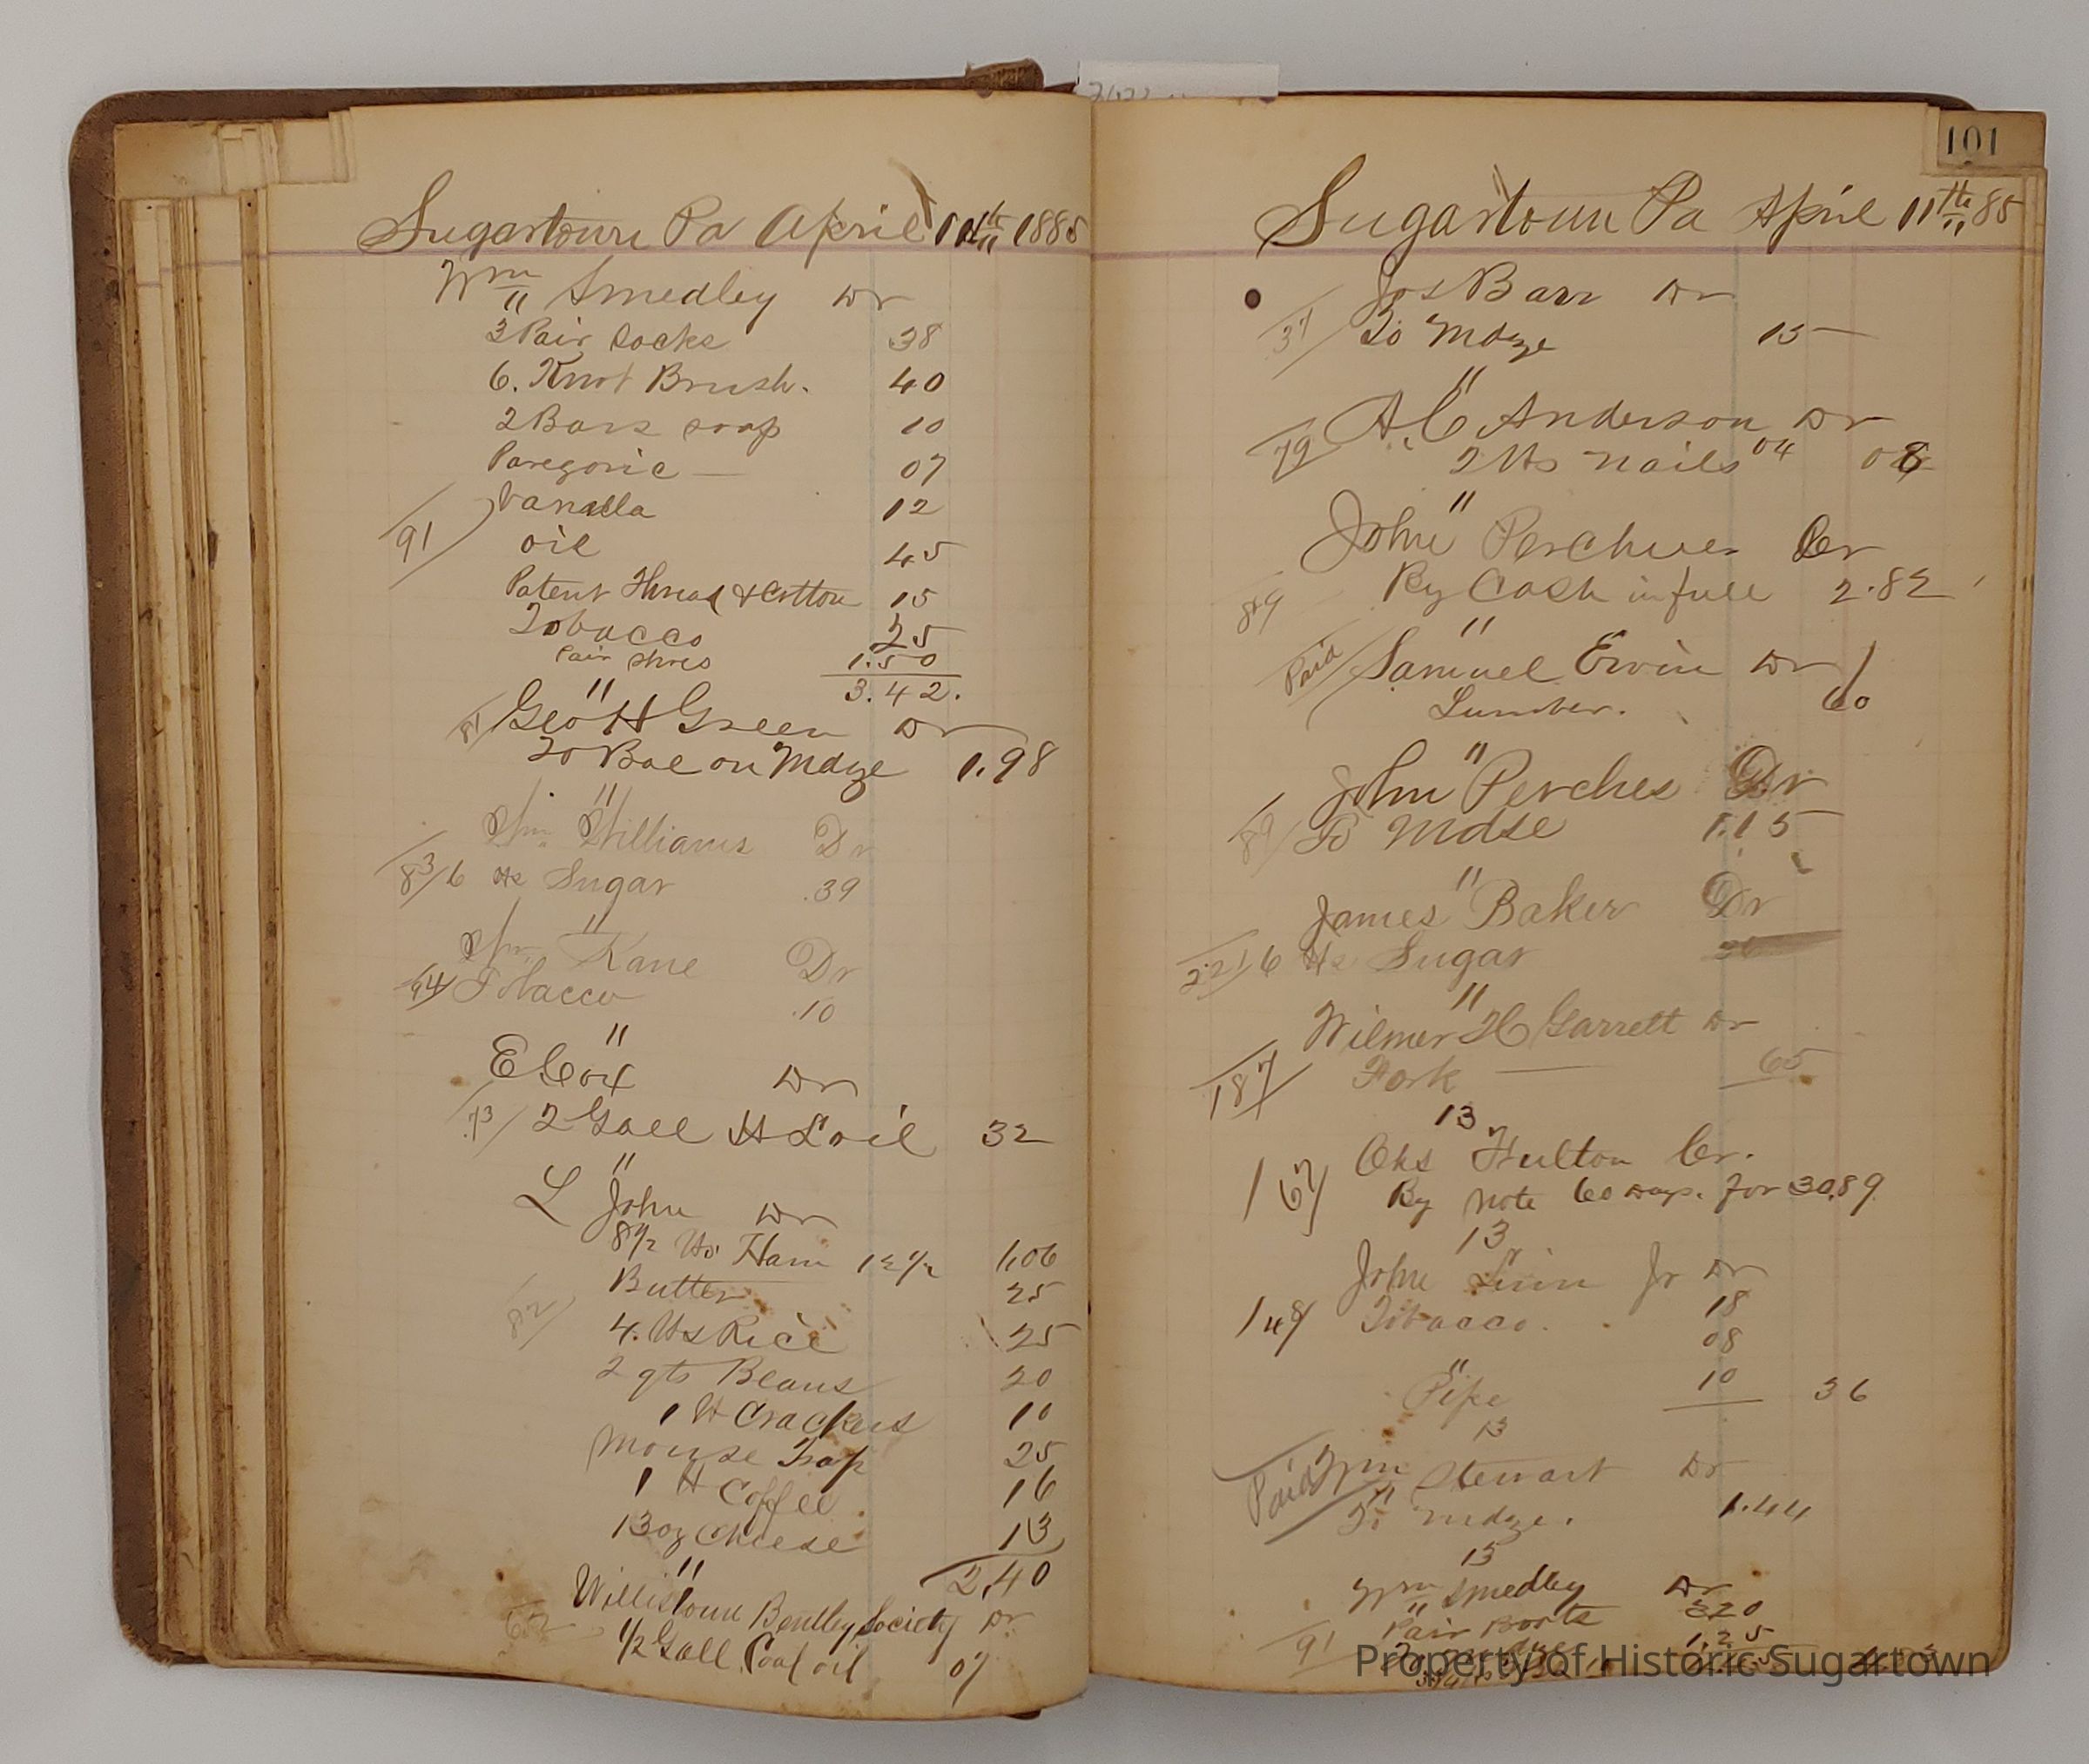 Sugartown Pa April 11th 1885
Wm Smedley Dr
3 Pair Socks 38
6. Knot Brush. 40
2 Bars soap 10
Paregoric — 07
Vanalla 12
91
oil 45
Patent Thread & Cotton 15
Tobacco 25
Pair shoes 1.50
3.42.
"
81 Geo H Green Dr
To Bal on Mdze 1.98
"
Wm Williams Dr
83/6 lbs Sugar .39
"
Wm Kane Dr
94 Tobacco .10
"
E Cox Dr
73/ 2 Gall H L oil 32
"
L John Dr
8 1/2 lbs Ham 12 1/2 1.06
Butter 25
82
4. lbs Rice 25
2 qts Beans 20
1 lb Crackers 10
Mouse Trap 25
1 lb Coffee 16
13 oz Cheese 13
2.40
"
Willistown Society Dr
62
1/2 Gall Coal oil 07
101
Sugartown Pa April 11th 85
Jos Barr Dr
37/ To Mdze 15
"
79 A C Anderson Dr
2 lbs nails 04 08
"
John Dr
89 By Cash in full 2.82
"
Paid Samuel Ervin Dr
Lumber. 60
"
John Perches Dr
89/ To Mdse 1.15
"
James Baker Dr
221/6 lbs Sugar
"
Wilmer H Garrett Dr
187 Fork — 65
13
Chs Hulton Cr.
167 By note 60 Days. for 30.89
13
John Linn Jr Dr
148/ Tobacco. 18
08
" Pipe 10 36
13
Paid Wm Stewart Dr
To mdze. 1.44
13
Wm Smedley Dr
Pair Boots 320
91 1.25
Property of Historic Sugartown